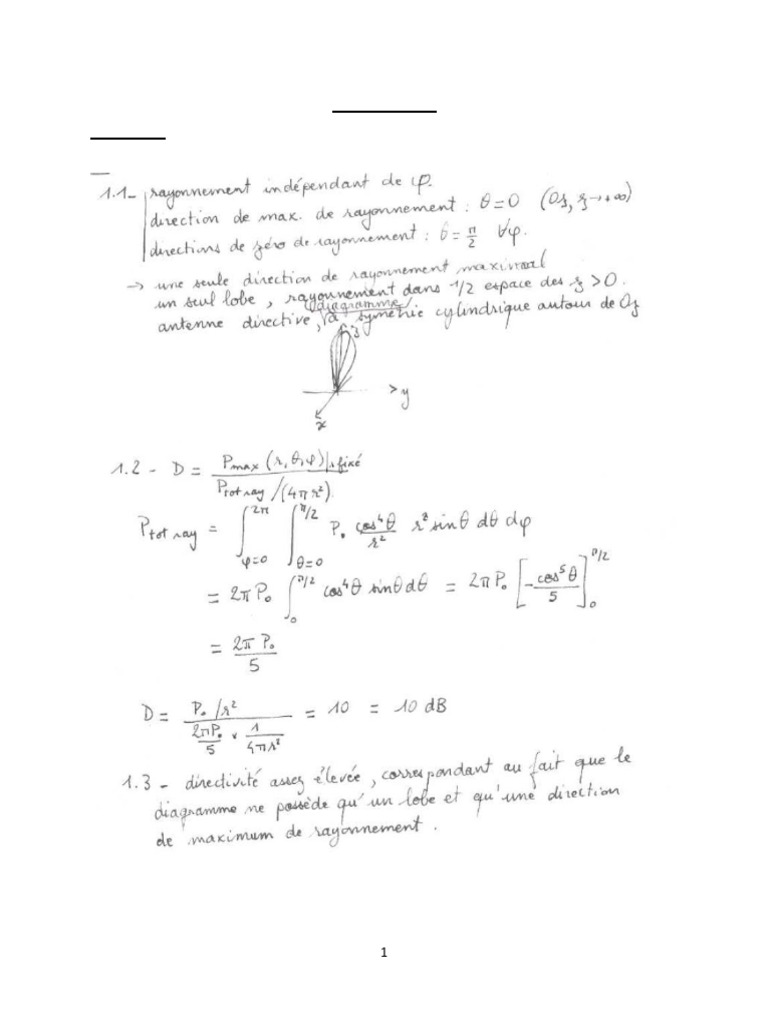 1.1- rayonnement indépendant de φ.
direction de max. de rayonnement : θ=0 (Oz, z→+∞)
directions de zéro de rayonnement : θ=π/2 ∀φ.
→ une seule direction de rayonnement maximal
un seul lobe, rayonnement dans 1/2 espace des z>0.
diagramme
antenne directive, à symétrie cylindrique autour de Oz
z
y
x
1.2 - D = Pmax (r,θ,φ)|r fixé / (Ptot ray /(4πr²))
Ptot ray = ∫_{φ=0}^{2π} ∫_{θ=0}^{π/2} P₀ cos⁴θ/r² r² sinθ dθ dφ
= 2π P₀ ∫_0^{π/2} cos⁴θ sinθ dθ = 2π P₀ [-cos⁵θ/5]_0^{π/2}
= 2π P₀/5
D = (P₀/r²) / (2πP₀/5 × 1/4πr²) = 10 = 10 dB
1.3 - directivité assez élevée, correspondant au fait que le
diagramme ne possède qu'un lobe et qu'une direction
de maximum de rayonnement.
1